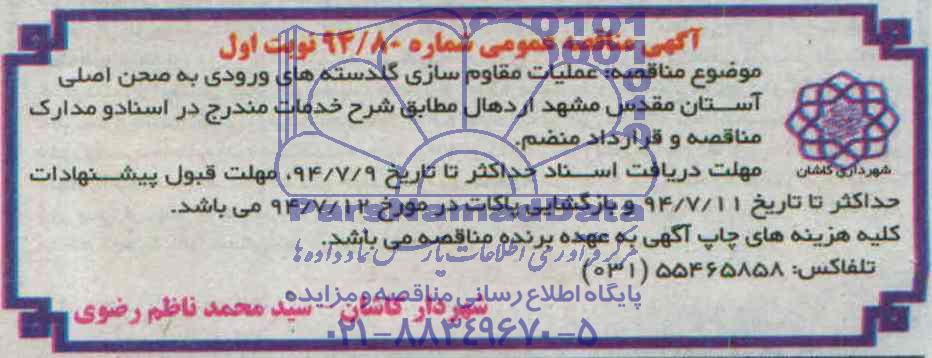 آگهی مناقصه عمومی شماره ۹۴/۸۰ نوبت اول
موضوع مناقصه: عملیات مقاوم سازی گلدسته های ورودی به صحن اصلی
آستان مقدس مشهد اردهال مطابق شرح خدمات مندرج در اسناد و مدارک
مناقصه و قرارداد منضم.
شهرداری کاشان
مهلت دریافت اسناد حداکثر تا تاریخ ۹۴/۷/۹، مهلت قبول پیشنهادات
حداکثر تا تاریخ ۹۴/۷/۱۱ و بازگشایی پاکات در مورخ ۹۴/۷/۱۲ می باشد.
ParsNamadData
کلیه هزینه های چاپ آگهی به عهده برنده مناقصه می باشد.
مرکز فرآوری اطلاعات پارس نماد داده ها
تلفاکس: ۵۵۴۶۵۸۵۸ (۰۳۱)
پایگاه اطلاع رسانی مناقصه و مزایده
شهردار کاشان - سید محمد ناظم رضوی
۰۲۱-۸۸۳۴۹۶۷۰-۵